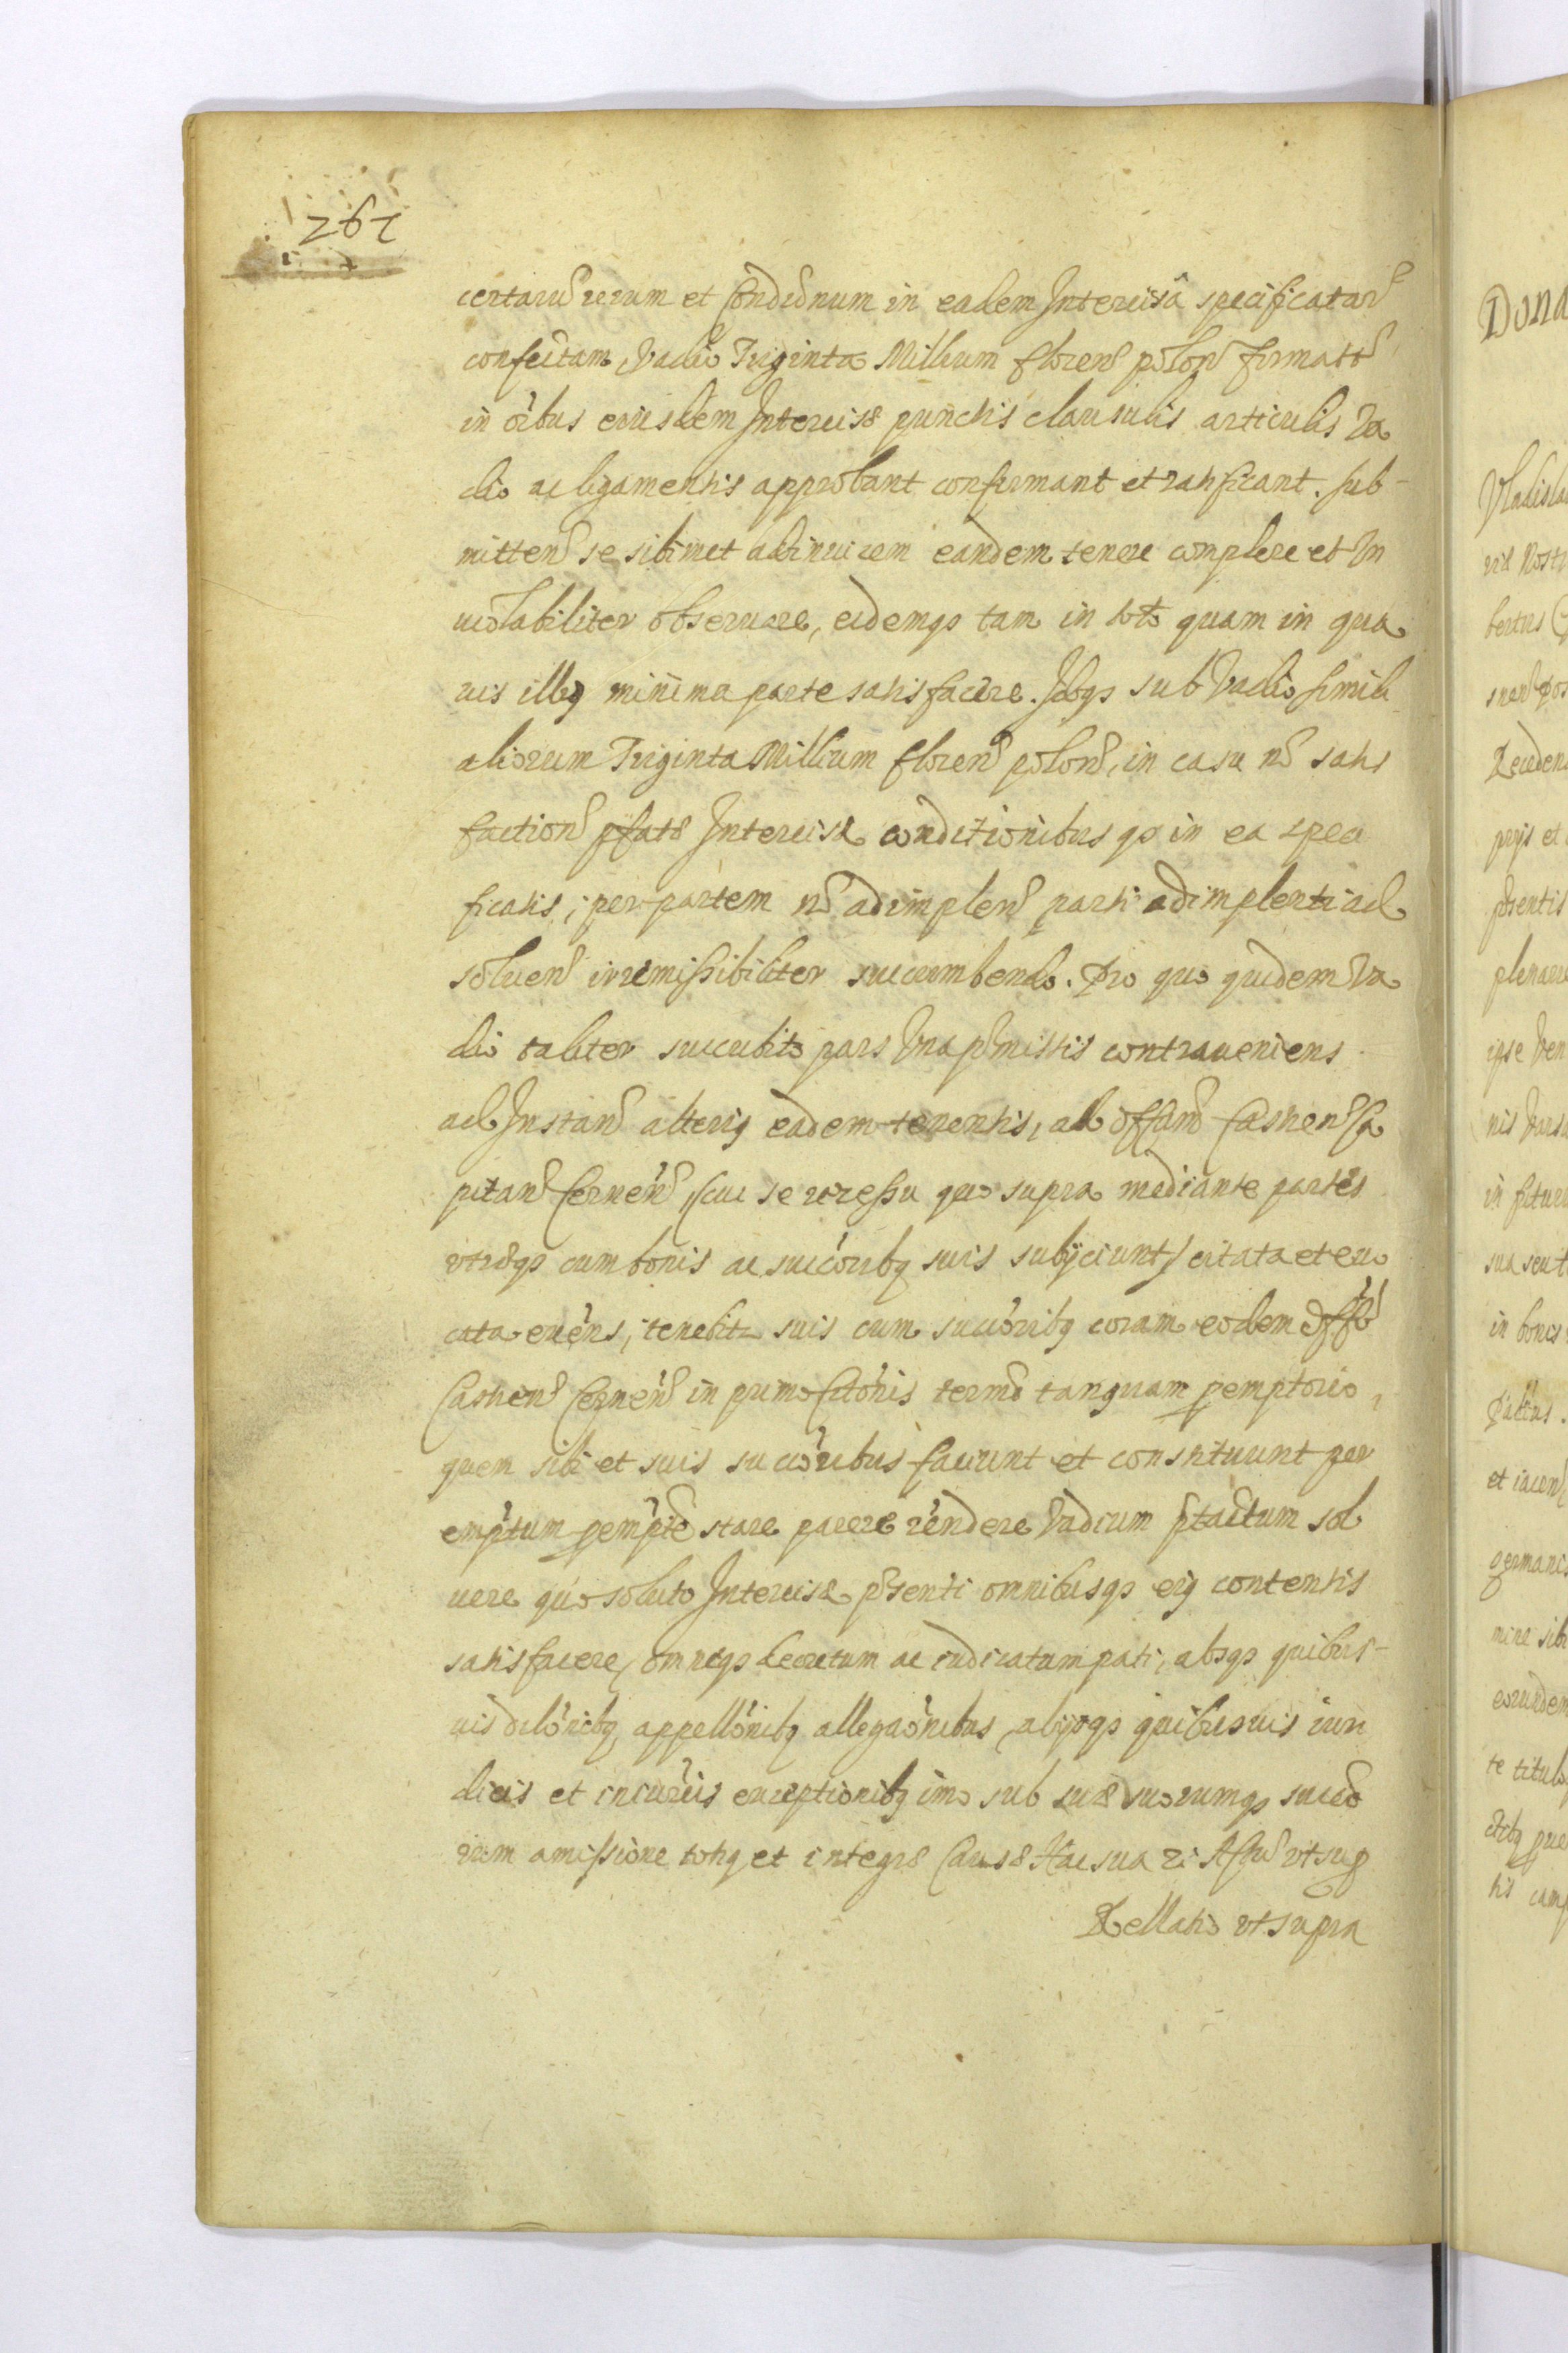 262
certaru rerum et Condionum in eadem Intercisa specificatar
confectam, Vadio Triginta Millium floren polon firmatā
in oibus eiusdem Intercisæ punctis clausulis articulis Va
dio ac ligamentis approbant confirmant et ratificant. Sub-
mitten se sibimet abinuicem eandem tenere complere et In
uiolabiliter obseruare, eidemqȝ tam in toto quam in qua
uis illius minima parte satisfacere. Idqȝ sub Vadio simili
aliorum Triginta Millium floren polon, in casu no satis
faction pfatæ Intercisæ conditionibusqȝ in ea speci
ficatis, per partem no adimplen parti adimplenti ad
soluen irremissibiliter succumbendo. Pro quo quidem Va
dio taliter succubito pars Vna pmissis contraueniens
ad Instan alterius eadem tenentis, ad offum Castren Ca
pitan Cernen, (cui se recessu quo supra mediante partes
utræqȝ cum bonis ac succoribȝ suis subijciunt) citata et euo
cata exens, tenebitr suis cum succoribȝ coram eodem offo
Castren Cernen in primo Citonis termo tanquam pemptorio,
quem sibi et suis succoribus faciunt et constituunt per
emptum pempte stare parere rendere Vadium ptactum sol
uere quo soluto Intercisæ psenti omnibusqȝ eius contentis
satisfacere, omneqȝ decretum ac iudicatum pati, absqȝ quibus-
uis dilonibȝ, appellonibȝ allegaonibus, alijsqȝ quibusuis iuri
dicis et iniurijs exceptionibȝ imo sub suæ suorumqȝ succo
rum amissione totius et integræ Causæ Hac sua ut sup
Relatio vt supra
Dona
Vladisla
ris Nost
bertus
Recedens
prijs et
psentis
plenarie
ipse Ven
in futuru
sua seu t
in bonis
Pactus.
et iacen
germanis
mine sibi
eorundem
te titulo